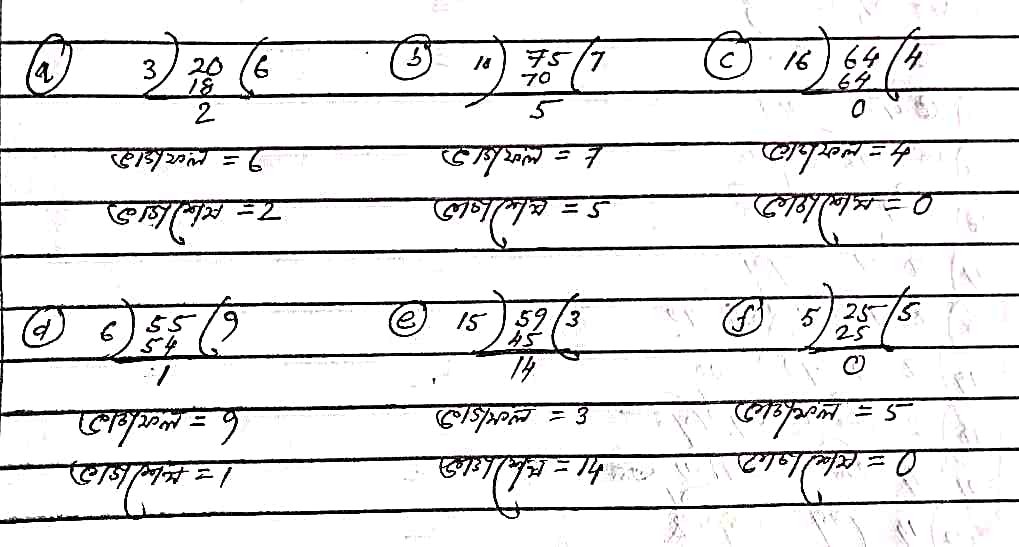 (a) 3) 20 (6 (b) 10) 75 (7 (c) 16) 64 (4
18 70 64
2 5 0
ভাগফল = 6 ভাগফল = 7 ভাগফল = 4
ভাগশেষ = 2 ভাগশেষ = 5 ভাগশেষ = 0
(d) 6) 55 (9 (e) 15) 59 (3 (f) 5) 25 (5
54 45 25
1 14 0
ভাগফল = 9 ভাগফল = 3 ভাগফল = 5
ভাগশেষ = 1 ভাগশেষ = 14 ভাগশেষ = 0